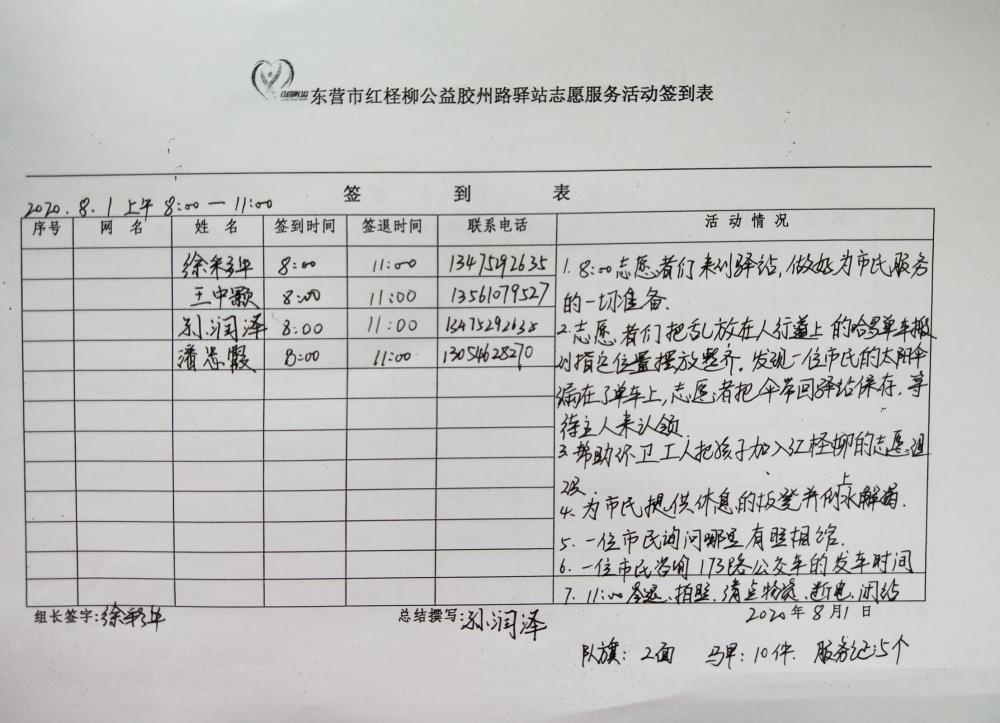 东营市红柽柳公益胶州路驿站志愿服务活动签到表
签 到 表
2020.8.1上午8:00—11:00
序号 网名 姓名 签到时间 签退时间 联系电话 活动情况
徐彩华 8:00 11:00 13475292635
王中颖 8:00 11:00 13561079527
孙润泽 8:00 11:00 13475292638
潘忠霞 8:00 11:00 13054628270
1. 8:00志愿者们来到驿站,做好为市民服务
的一切准备.
2.志愿者们把乱放在人行道上的哈罗单车搬
到指定位置摆放整齐.发现一位市民的太阳伞
漏在了单车上,志愿者把伞带回驿站保存,等
待主人来认领
3.帮助环卫工人把孩子加入红柽柳的志愿组
织
4.为市民提供休息的板凳并倒上水解渴.
5.一位市民询问哪里有照相馆.
6.一位市民咨询173路公交车的发车时间
7.11:00签退、拍照、清点物资、断电、闭站
组长签字:徐彩华 总结撰写:孙润泽 2020年8月1日
队旗:2面 马甲:10件. 服务证:5个